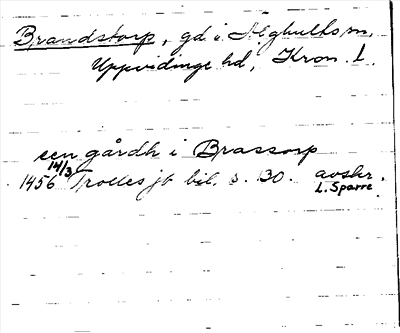 Brandstorp, gd i Älghults sn,
Uppvidinge hd, Kron. L.
een gårdh i Brassorp
1456 14/3 Trolles jb bil. s. 30. avskr.
L. Sparre.